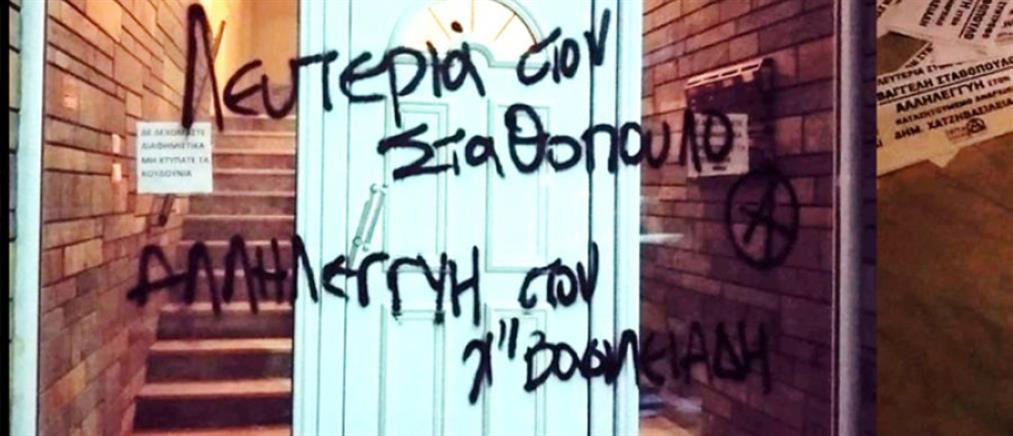 Λευτεριά στον
Σταθόπουλο
Α
ΑΛΛΗΛΕΓΓΥΗ στον
χ'' Βασιλειΐαδη
ΔΕ ΔΕΧΟΜΑΣΤΕ
ΔΙΑΦΗΜΙΣΤΙΚΑ
ΜΗ ΧΤΥΠΑΤΕ ΤΑ
ΚΟΥΔΟΥΝΙΑ
ΛΕΥΤΕΡΙΑ ΣΤ
ΒΑΓΓΕΛΗ ΣΤΑΘΟΠΟΥΛΟ
ΑΛΛΗΛΕΓΓΥΗ ΣΤΟΝ
ΔΗΜ. ΧΑΤΖΗΒΑΣΙΛΕΙΑ